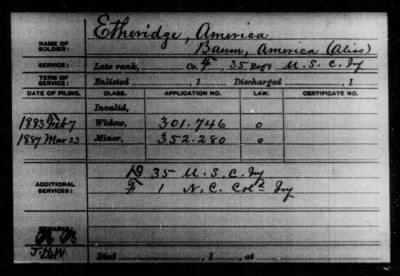 Etheridge, America
NAME OF SOLDIER: Baum, America (Alias)
SERVICE: Late rank, Co. F, 35 Reg't U. S. C. Iy
TERM OF SERVICE: Enlisted , 1 Discharged , 1
DATE OF FILING. CLASS. APPLICATION NO. LAW. CERTIFICATE NO.
Invalid,
1883 Feb 7 Widow, 301.746 o
1887 Mar 23 Minor, 352.280 o
D 35 U. S. C. Iy
ADDITIONAL SERVICES: F 1 N. C. Cold Iy
REMARKS:
Died , 1 , at